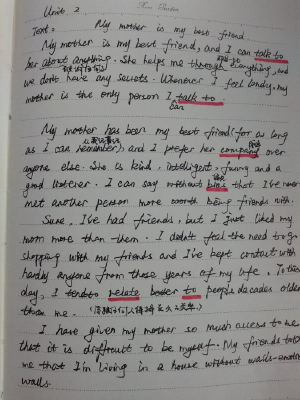 Unit 2
Text: My mother is my best friend.
My mother is my best friend, and I can talk to
her about anything. She helps me through everything, and
we don't have any secrets. Whenever I feel lonely, my
mother is the only person I talk to.
can
My mother has been my best friend (for as long
as I can remember), and I prefer her company over
anyone else. She is kind, intelligent, funny and a
good listener. I can say without bias that I've never
met another person more worth being friends with.
Sure, I've had friends, but I just liked my
mom more than them. I didn't feel the need to go
shopping with my friends and I've kept contact with
hardly anyone from those years of my life. To this
day, I tend to relate better to people decades older
than me.
I have given my mother so much access to me
that it is difficult to be myself. My friends told
me that I'm living in a house without walls-emotional
walls.